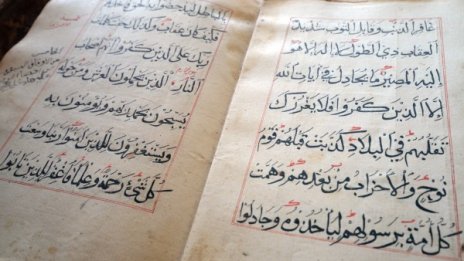 غافر الذنب وقابل التوب شديد
العقاب ذي الطول لا اله الا هو
اليه المصير ما يجادل في آيات الله
الا الذين كفروا فلا يغررك
تقلبهم في البلاد كذبت قبلهم قوم
نوح والاحزاب من بعدهم وهمت
كل امة برسولهم ليأخذوه وجادلوا
بالباطل ليدحضوا به
كان عقاب وكذلك حقت
ربك على الذين كفروا انهم اصحاب
النار الذين يحملون العرش ومن حوله
يسبحون بحمد ربهم ويؤمنون به
ويستغفرون للذين آمنوا ربنا وسعت
كل شئ رحمة وعلما فاغفر للذين تابوا